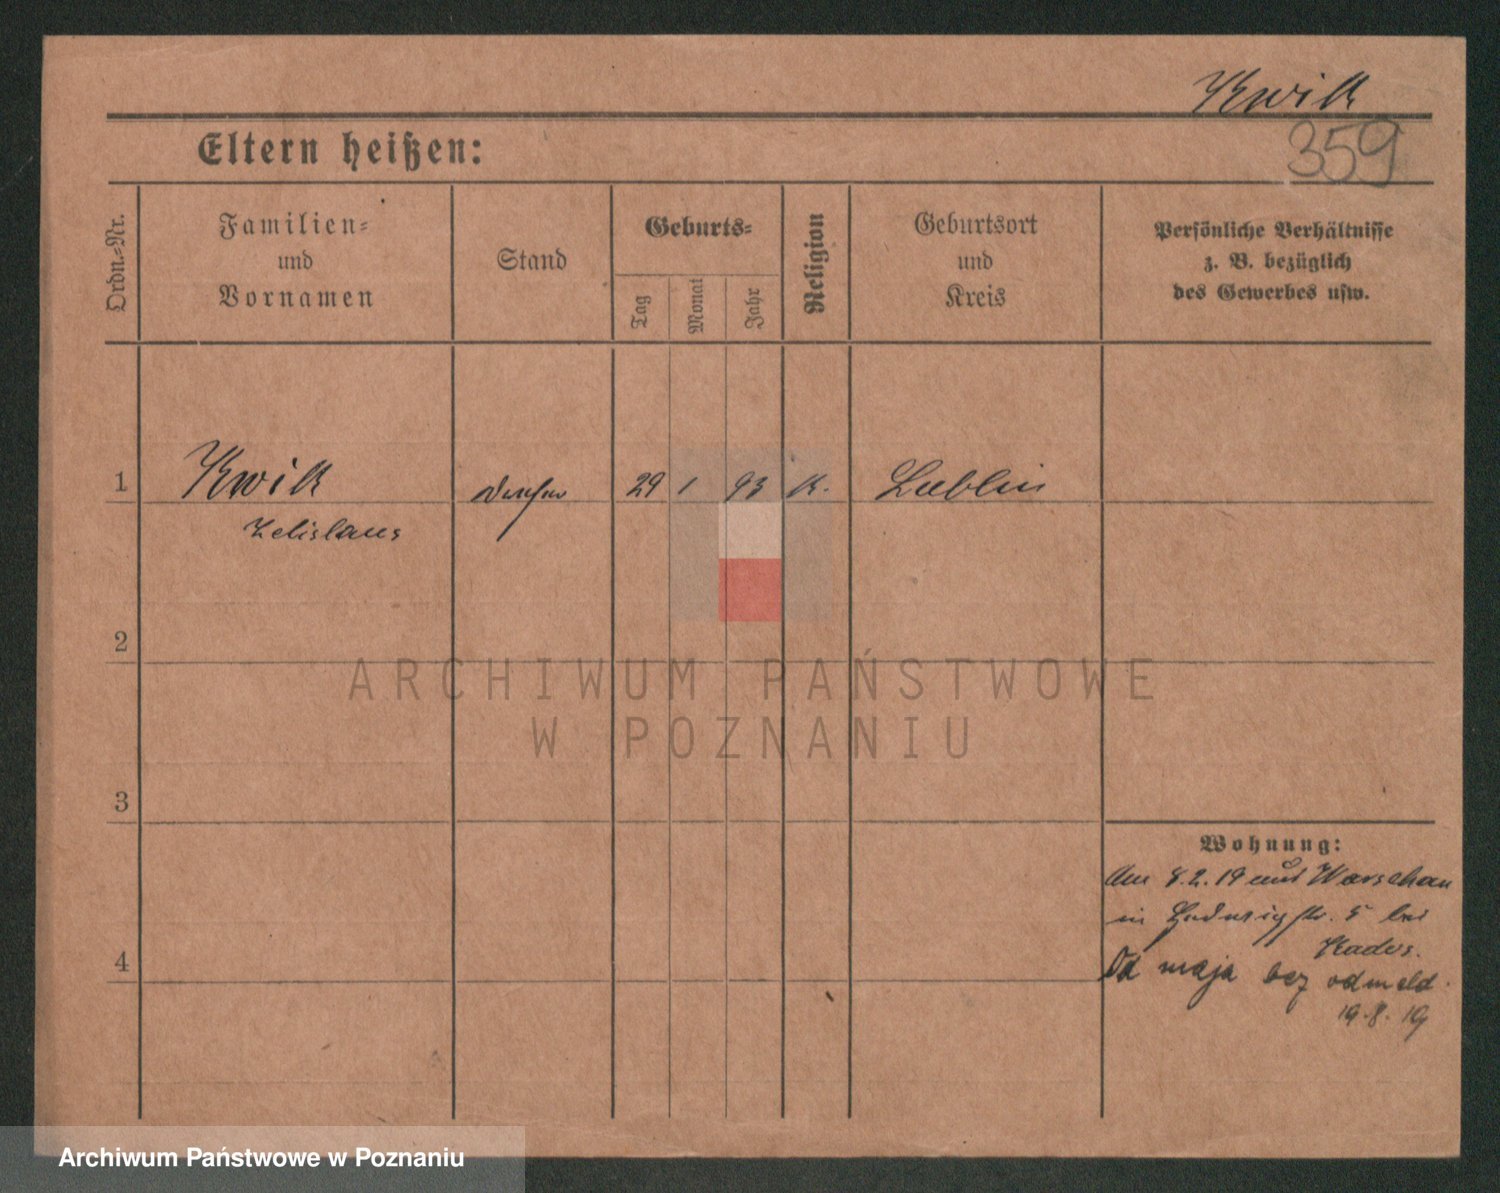 Kwik
359
Eltern heißen:
Ordn.=Nr.
Familien=
und
Vornamen
Stand
Geburts=
Tag
Monat
Jahr
Religion
Geburtsort
und
Kreis
Persönliche Verhältnisse
z. B. bezüglich
des Gewerbes usw.
1
Kwik
29 1 93 K.
Lublin
Zelislaus
2
ARCHIWUM PAŃSTWOWE
W POZNANIU
3
Wohnung:
Am 8.2.19 aus Warschau
in Hedwigstr. 5 bei
4
Od maja bez odmeld.
19.8.19
Archiwum Państwowe w Poznaniu